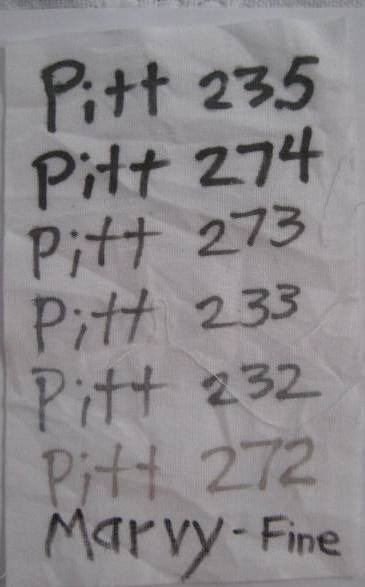 Pitt 235
Pitt 274
Pitt 273
Pitt 233
Pitt 232
Pitt 272
Marvy-Fine